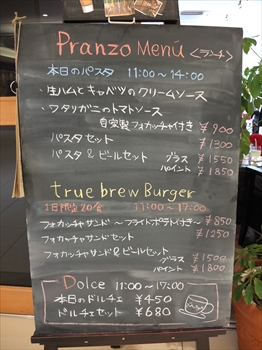 Pranzo Menú <ランチ>
本日のパスタ 11:00〜14:00
・生ハムとキャベツのクリームソース
・ワタリガニのトマトソース
自家製フォカッチャ付き ¥900
パスタセット ¥1300
パスタ&ビールセット グラス ¥1550
パイント ¥1850
true brew Burger
1日限定20食 11:00〜17:00
フォカッチャサンド 〜フライドポテト付き〜 ¥850
フォカッチャサンドセット ¥1250
フォカッチャサンド&ビールセット
グラス ¥1500
パイント ¥1800
Dolce 11:00〜17:00
本日のドルチェ ¥450
ドルチェセット ¥680